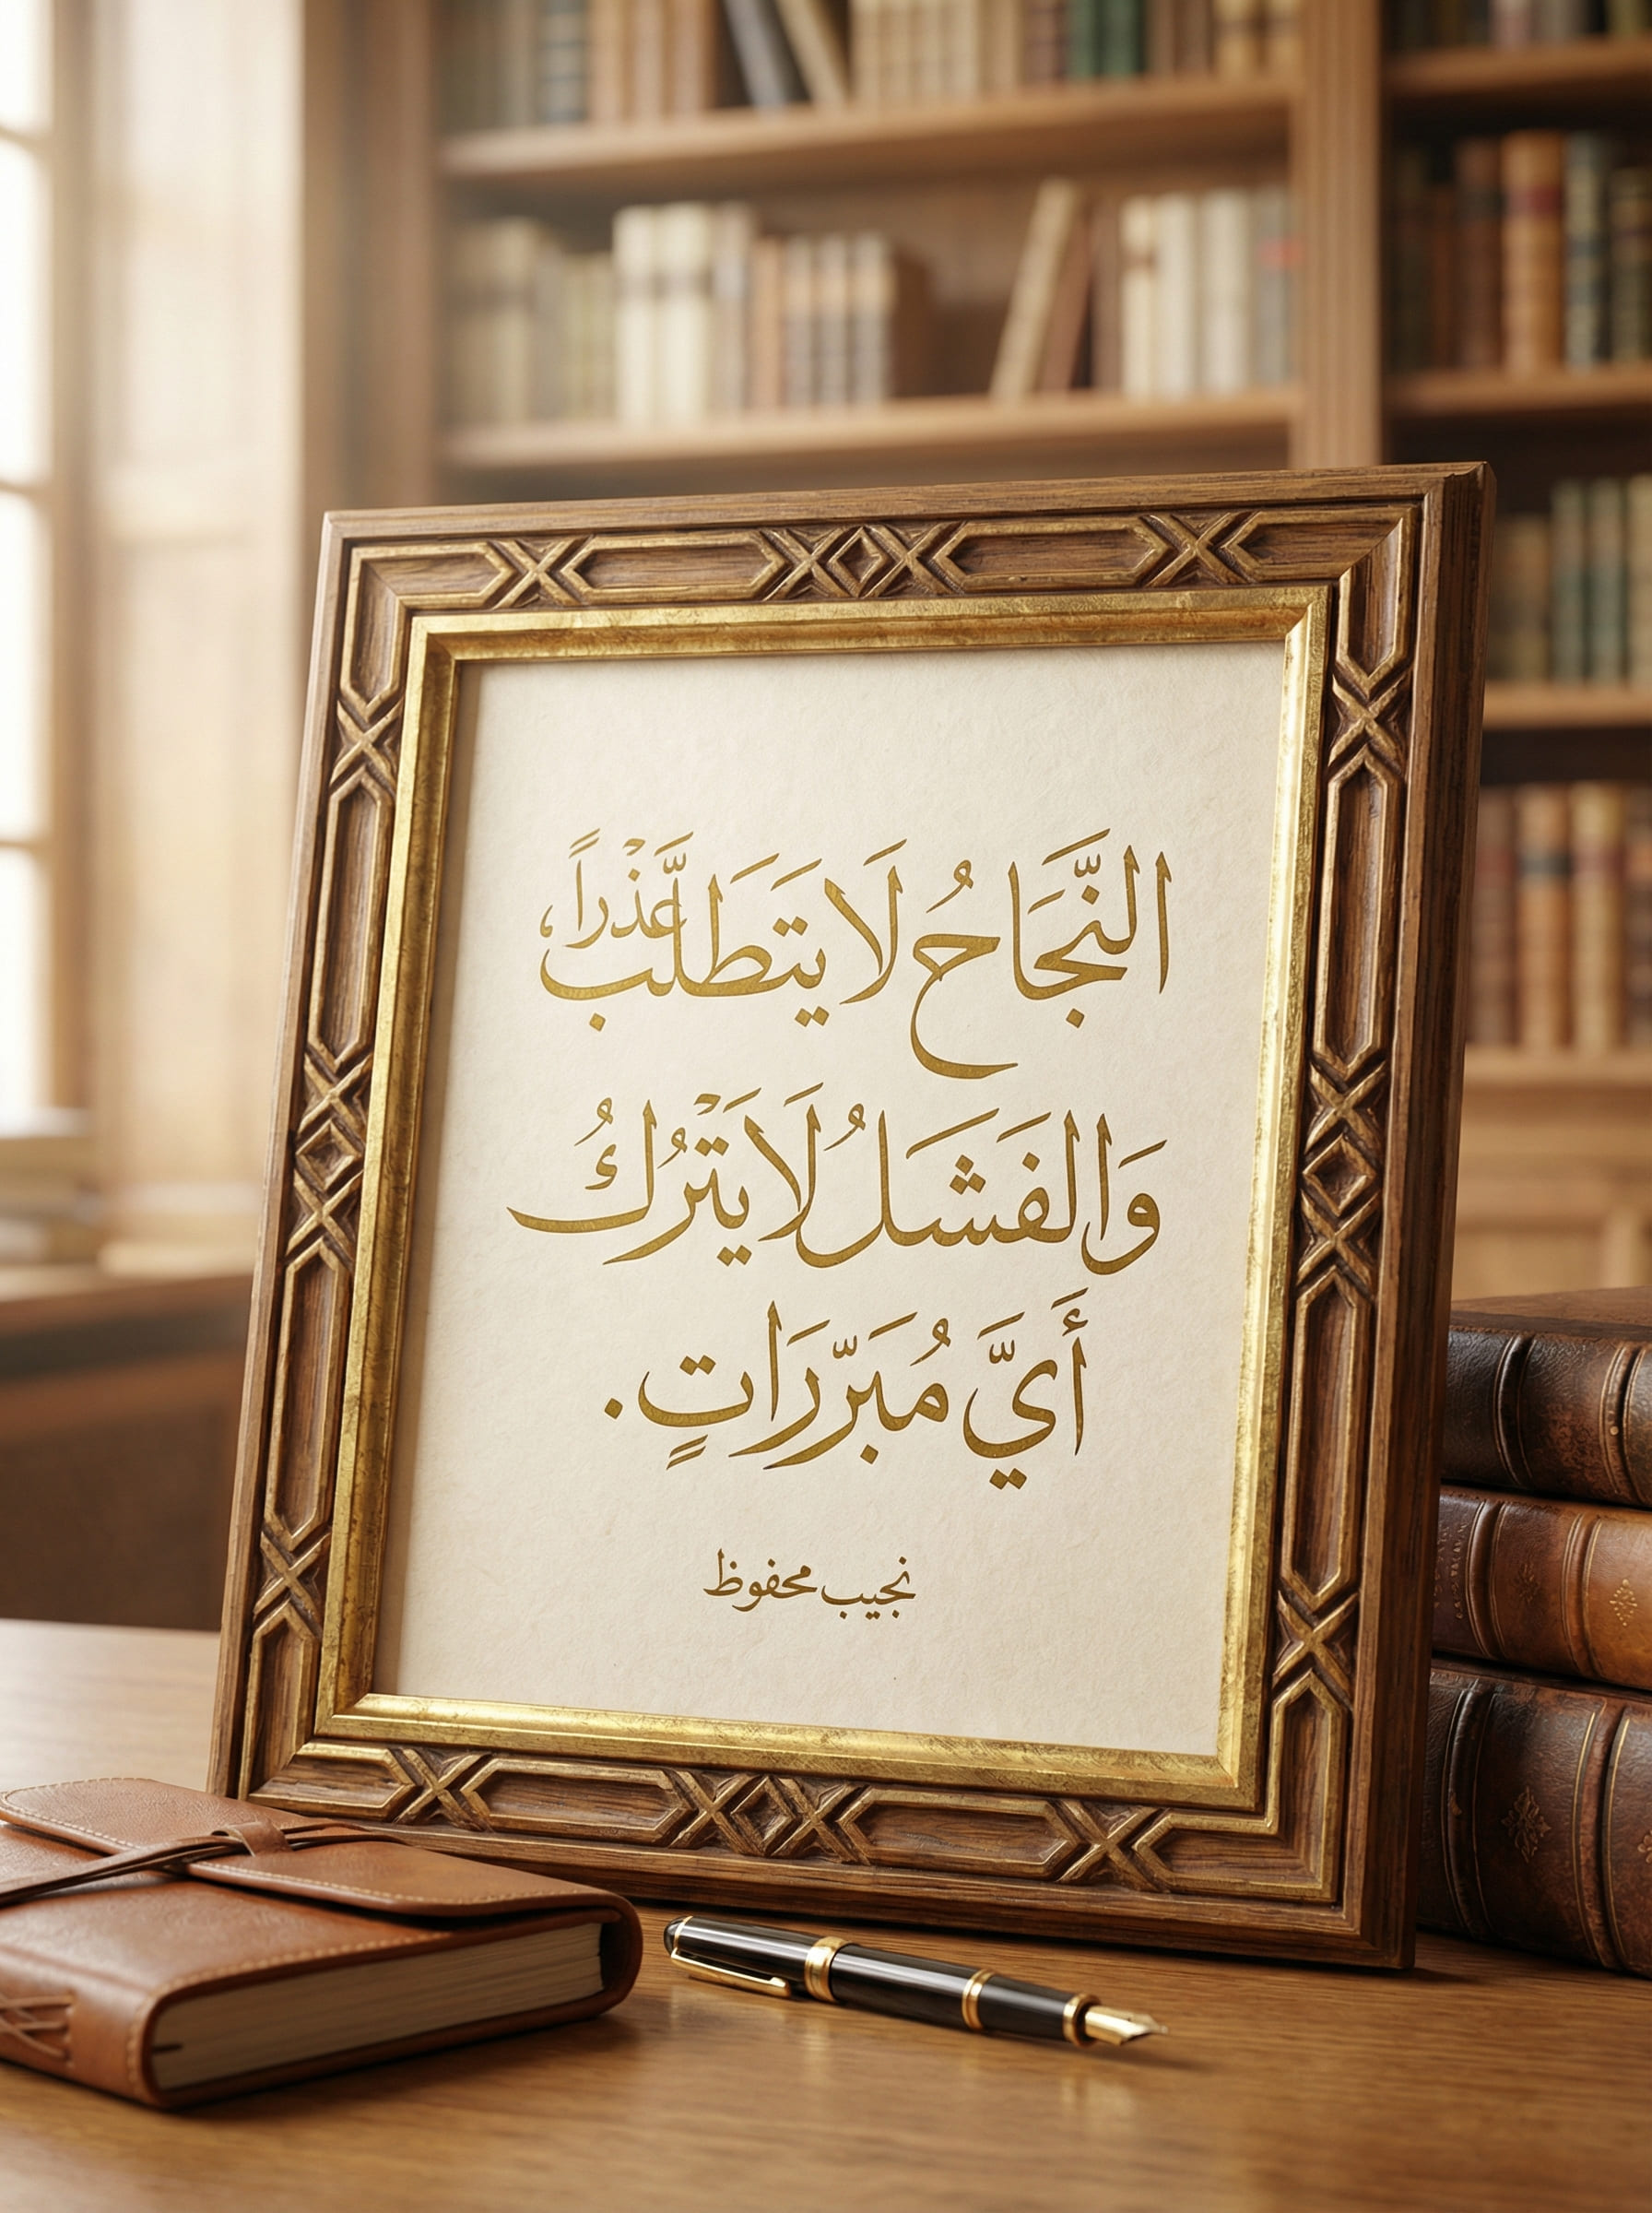 النَّجَاحُ لَا يَتَطَلَّب عَذْراً،
وَالفَشَلُ لَا يَتْرُكُ
أَيَّ مُبَرّرَاتٍ.
نجيب محفوظ